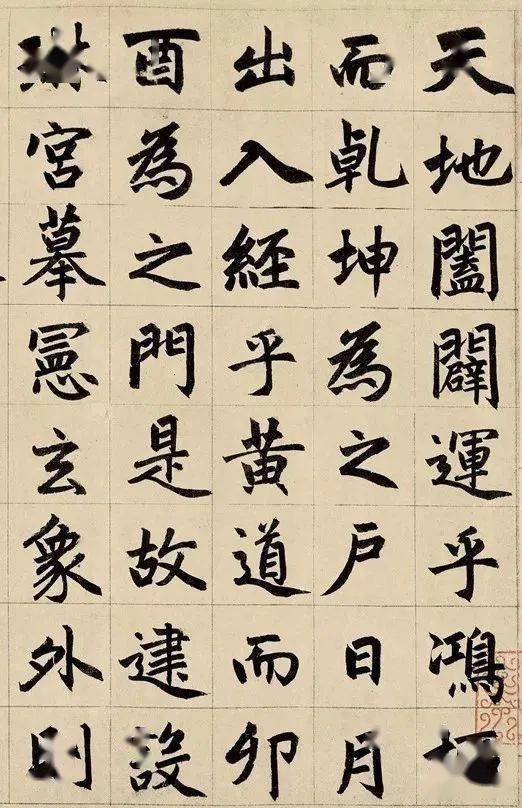 天地闔闢運乎鴻
而乹坤為之戶日月
出入經乎黃道而卯
酉為之門是故建設
琳宮摹憲玄象外則